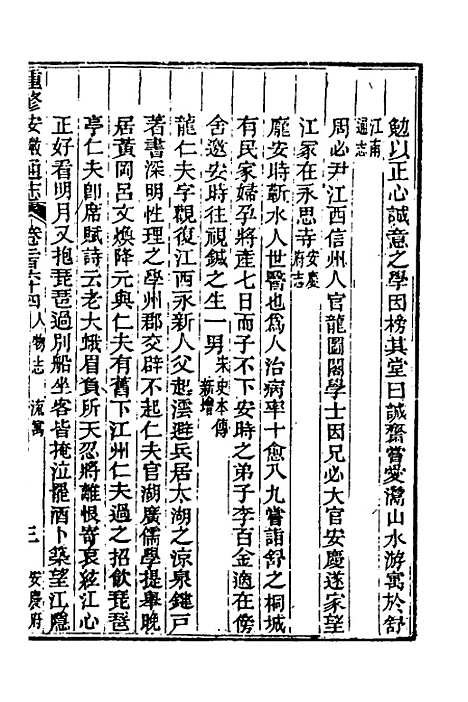 勉以正心誠意之學因榜其堂曰誠齋嘗愛灊山水游寓於舒
江南通志
周必尹江西信州人官龍圖閣學士因兄必大官安慶遂家望
江冢在永思寺安慶府志
龐安時蘄水人世醫也爲人治病率十愈八九嘗詣舒之桐城
有民家婦孕將產七日而子不下安時之弟子李百金適在傍
舍邀安時往視鍼之生一男宋史本傳新增
龍仁夫字觀復江西永新人父起澐避兵居太湖之涼泉鍵戸
著書深明性理之學州郡交辟不起仁夫官湖廣儒學提舉晚
居黃岡呂文煥降元與仁夫有舊下江州仁夫過之招飲琵琶
亭仁夫卽席賦詩云老大蛾眉負所天忍將離恨寄哀絃江心
正好看明月又抱琵琶過別船坐客皆掩泣罷酒卜築望江隱
重修安徽通志 卷二百六十四 人物志 流寓 三 安慶府